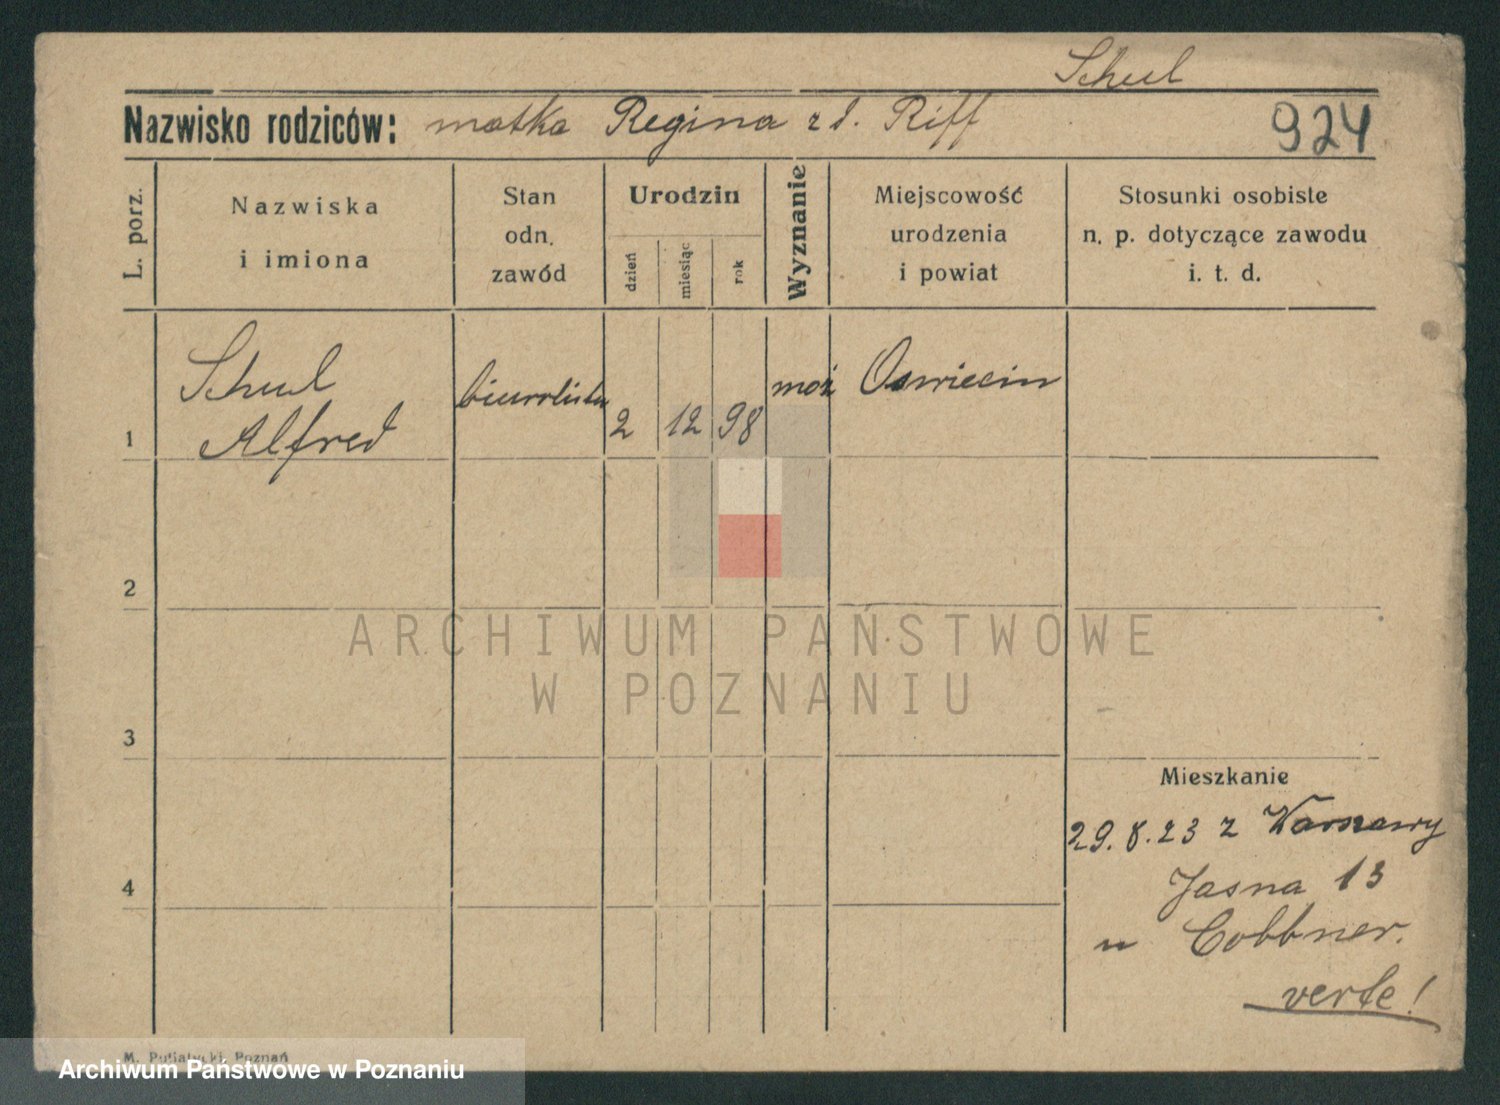 Schul
Nazwisko rodziców: matka Regina z d. Riff
924
L. porz.
Nazwiska
i imiona
Stan
odn.
zawód
Urodzin
dzień
miesiąc
rok
Wyznanie
Miejscowość
urodzenia
i powiat
Stosunki osobiste
n. p. dotyczące zawodu
i. t. d.
1
Schul
Alfred
biuralista
2 12 98
moż
Oswiecim
2
3
4
Mieszkanie
29. 8. 23 z Warszawy
Jasna 13
u Cobbner.
verte!
ARCHIWUM PAŃSTWOWE
W POZNANIU
M. Putiatycki, Poznań
Archiwum Państwowe w Poznaniu